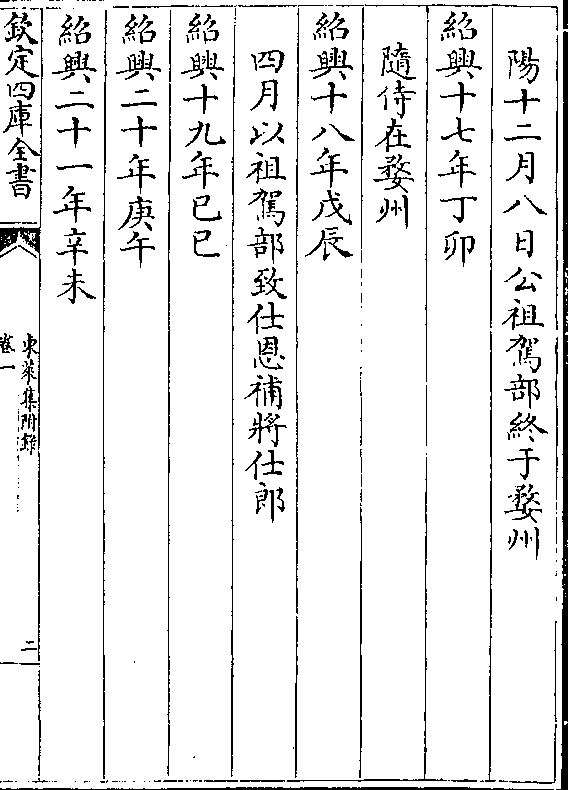 陽十二月八日公祖駕部終于婺州
紹興十七年丁卯
隨侍在婺州
紹興十八年戊辰
四月以祖駕部致仕恩補將仕郎
紹興十九年已已
紹興二十年庚午
紹興二十一年辛未
欽定四庫全書
東萊集附錄
卷一
二